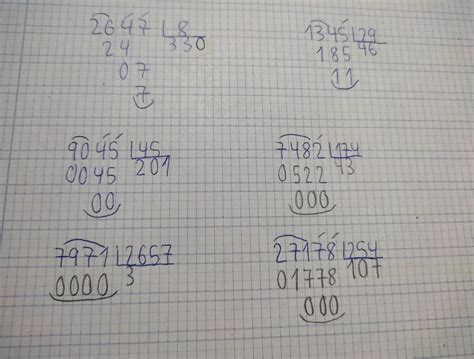 2647 8
24 330
07
7
1345 29
185 46
11
9045 45
0045 201
00
7482 174
0522 43
000
7971 2657
0000 3
27178 254
01778 107
000